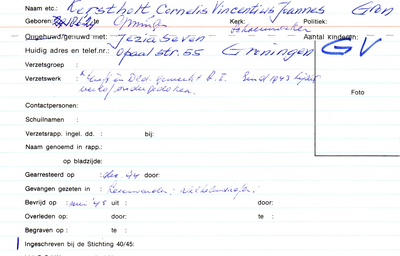 Naam etc.: Kerstholt Cornelis Vincentius Joannes Gron
Geboren te Kerk: Politiek:
Ongehuwd/gehuwd met: Jezia Seven Aantal kinderen:
Huidig adres en telef.nr.: Opaalstr. 55 Groningen GV
Verzetsgroep :
Verzetswerk : in Dld. gewerkt 1943
ondergedoken. Foto
Contactpersonen:
Schuilnamen :
Verzetsrapp. ingel. dd. : bij:
Naam genoemd in rapp.:
op bladzijde:
Gearresteerd op : dec 44 door:
Gevangen gezeten in : Leeuwarden; Wilhelmshaven;
Bevrijd op : mei '45 uit : door:
Overleden op: door: te :
Begraven op : te :
Ingeschreven bij de Stichting 40/45: